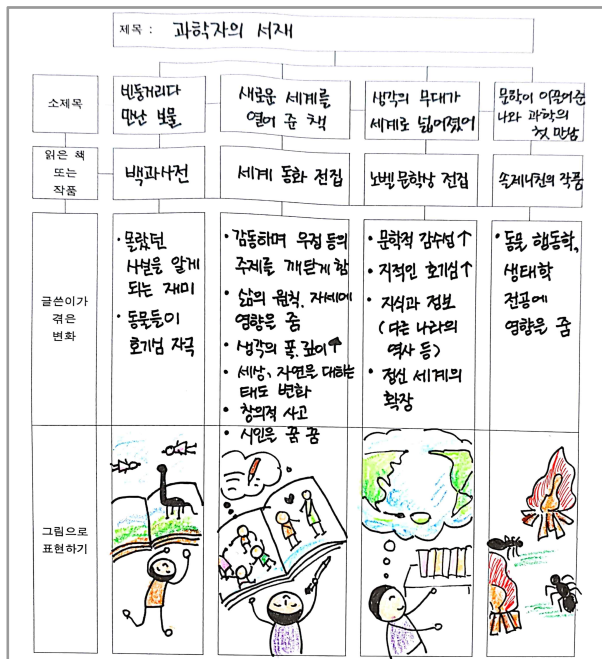 제목 : 과학자의 서재
소제목
빈둥거리다
만난 보물
새로운 세계를
열어 준 책
생각의 무대가
세계로 넓어졌어
문학이 이끌어준
나와 과학의
첫 만남
읽은 책
또는
작품
백과사전
세계 동화 전집
노벨문학상 전집
솔제니친의 작품
글쓴이가
겪은
변화
• 몰랐던
사실을 알게
되는 재미
• 동물들이
호기심 자극
• 감동하며 우정 등의
주제를 깨닫게 함
• 삶의 원칙, 자세에
영향을 줌
• 생각의 폭, 깊이↑
• 세상, 자연을 대하는
태도 변화
• 창의적 사고
• 시인을 꿈 꿈
• 문학적 감수성↑
• 지적인 호기심↑
• 지식과 정보
(다른 나라의
역사 등)
• 정신 세계의
확장
• 동물 행동학,
생태학
전공에
영향을 줌
그림으로
표현하기